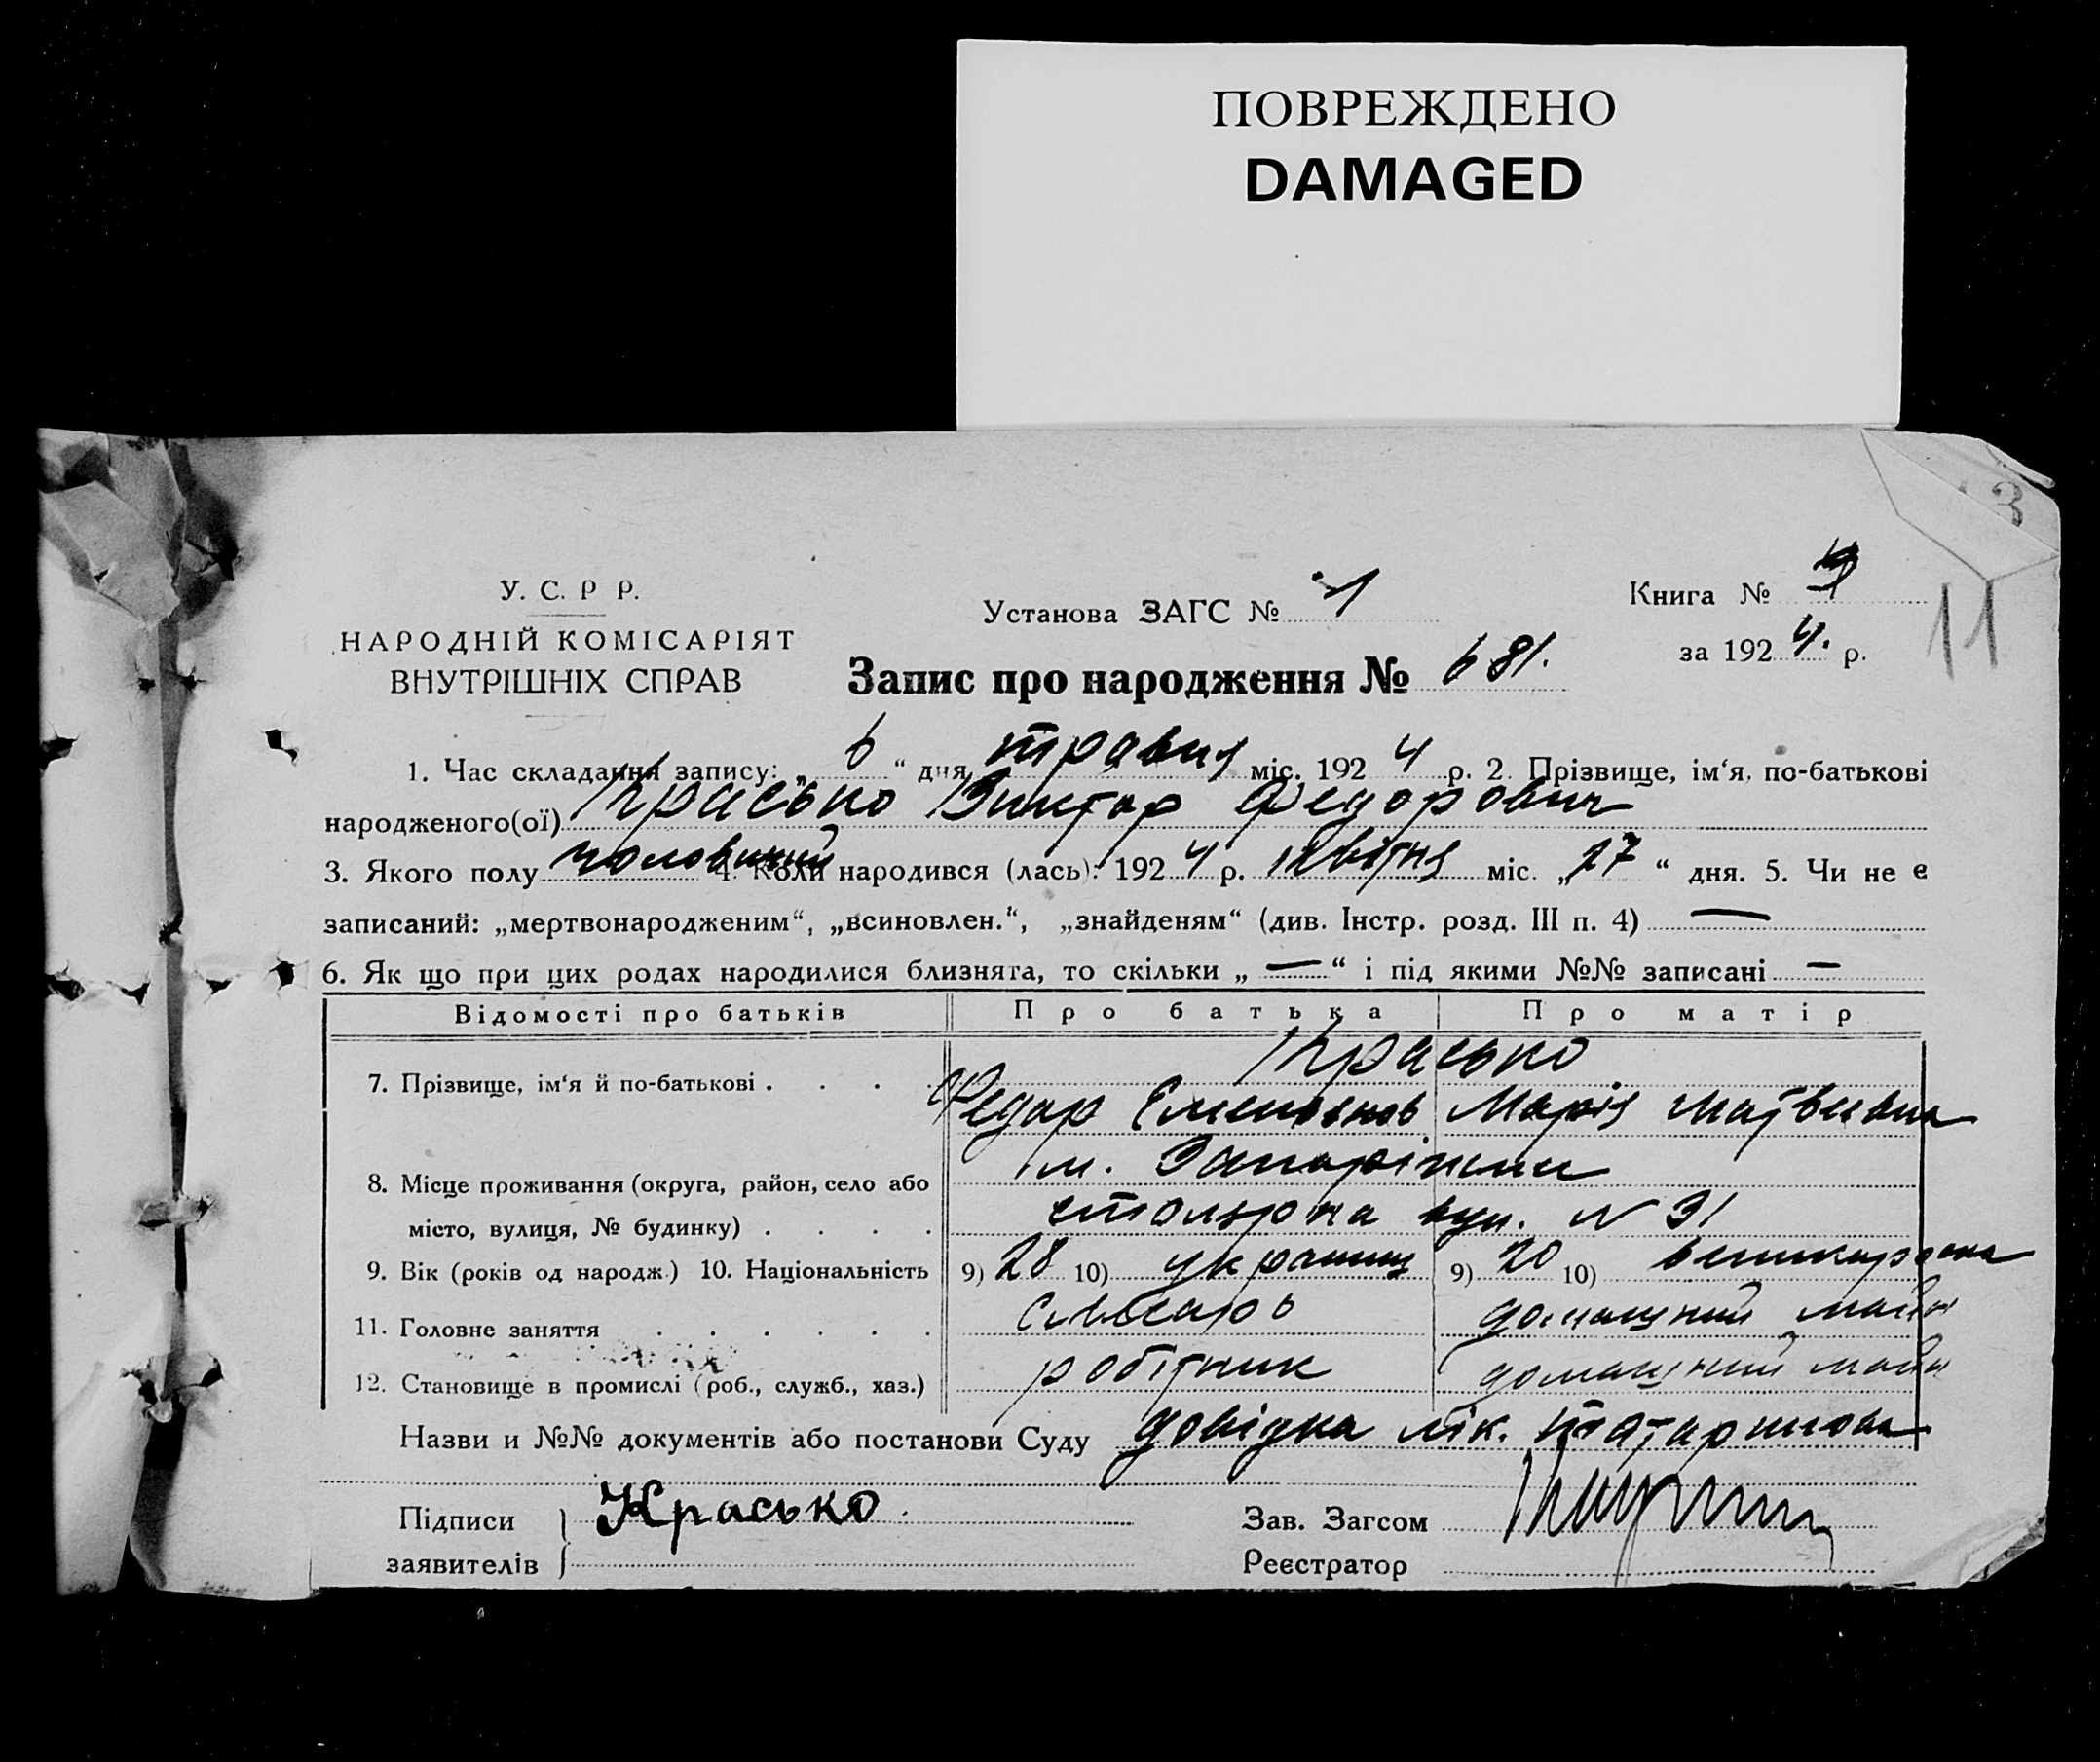 ПОВРЕЖДЕНО
DAMAGED
3
11
У. С. Р Р.
НАРОДНІЙ КОМІСАРІЯТ
ВНУТРІШНІХ СПРАВ
Установа ЗАГС № 1
Книга №
за 1924. р.
Запис про народження № 681.
1. Час складання запису: „ 6 “ дня травня міс. 1924 р. 2. Прізвище, ім‘я, по-батькові
народженого(ої) Красько Виктор Федорович
3. Якого полу чоловичий 4. Коли народився (лась): 1924 р. квітня міс. „ 27 “ дня. 5. Чи не є
записаний: „мертвонародженим“, „всиновлен.“, „знайденям“ (див. Інстр. розд. III п. 4) —
6. Як що при цих родах народилися близняга, то скільки „ — “ і під якими №№ записані —
Відомості про батьків Про батька Про матір
Красько
7. Прізвище, ім‘я й по-батькові . . . . Федор Емельянов Марія Матвеевна
м. Запоріжжя
8. Місце проживання (округа, район, село або
місто, вулиця, № будинку) . . . . вул. № 31
9. Вік (років од народж.) 10. Національність 9) 28 10) украинец 9) 20 10)
11. Головне заняття . . . . . . слюсарь домашний
12. Становище в промислі (роб., служб., хаз.) робітник домашний
Назви и №№ документів або постанови Суду довідка лік. Татаринова
Підписи Красько.
заявителів
Зав. Загсом
Реєстратор